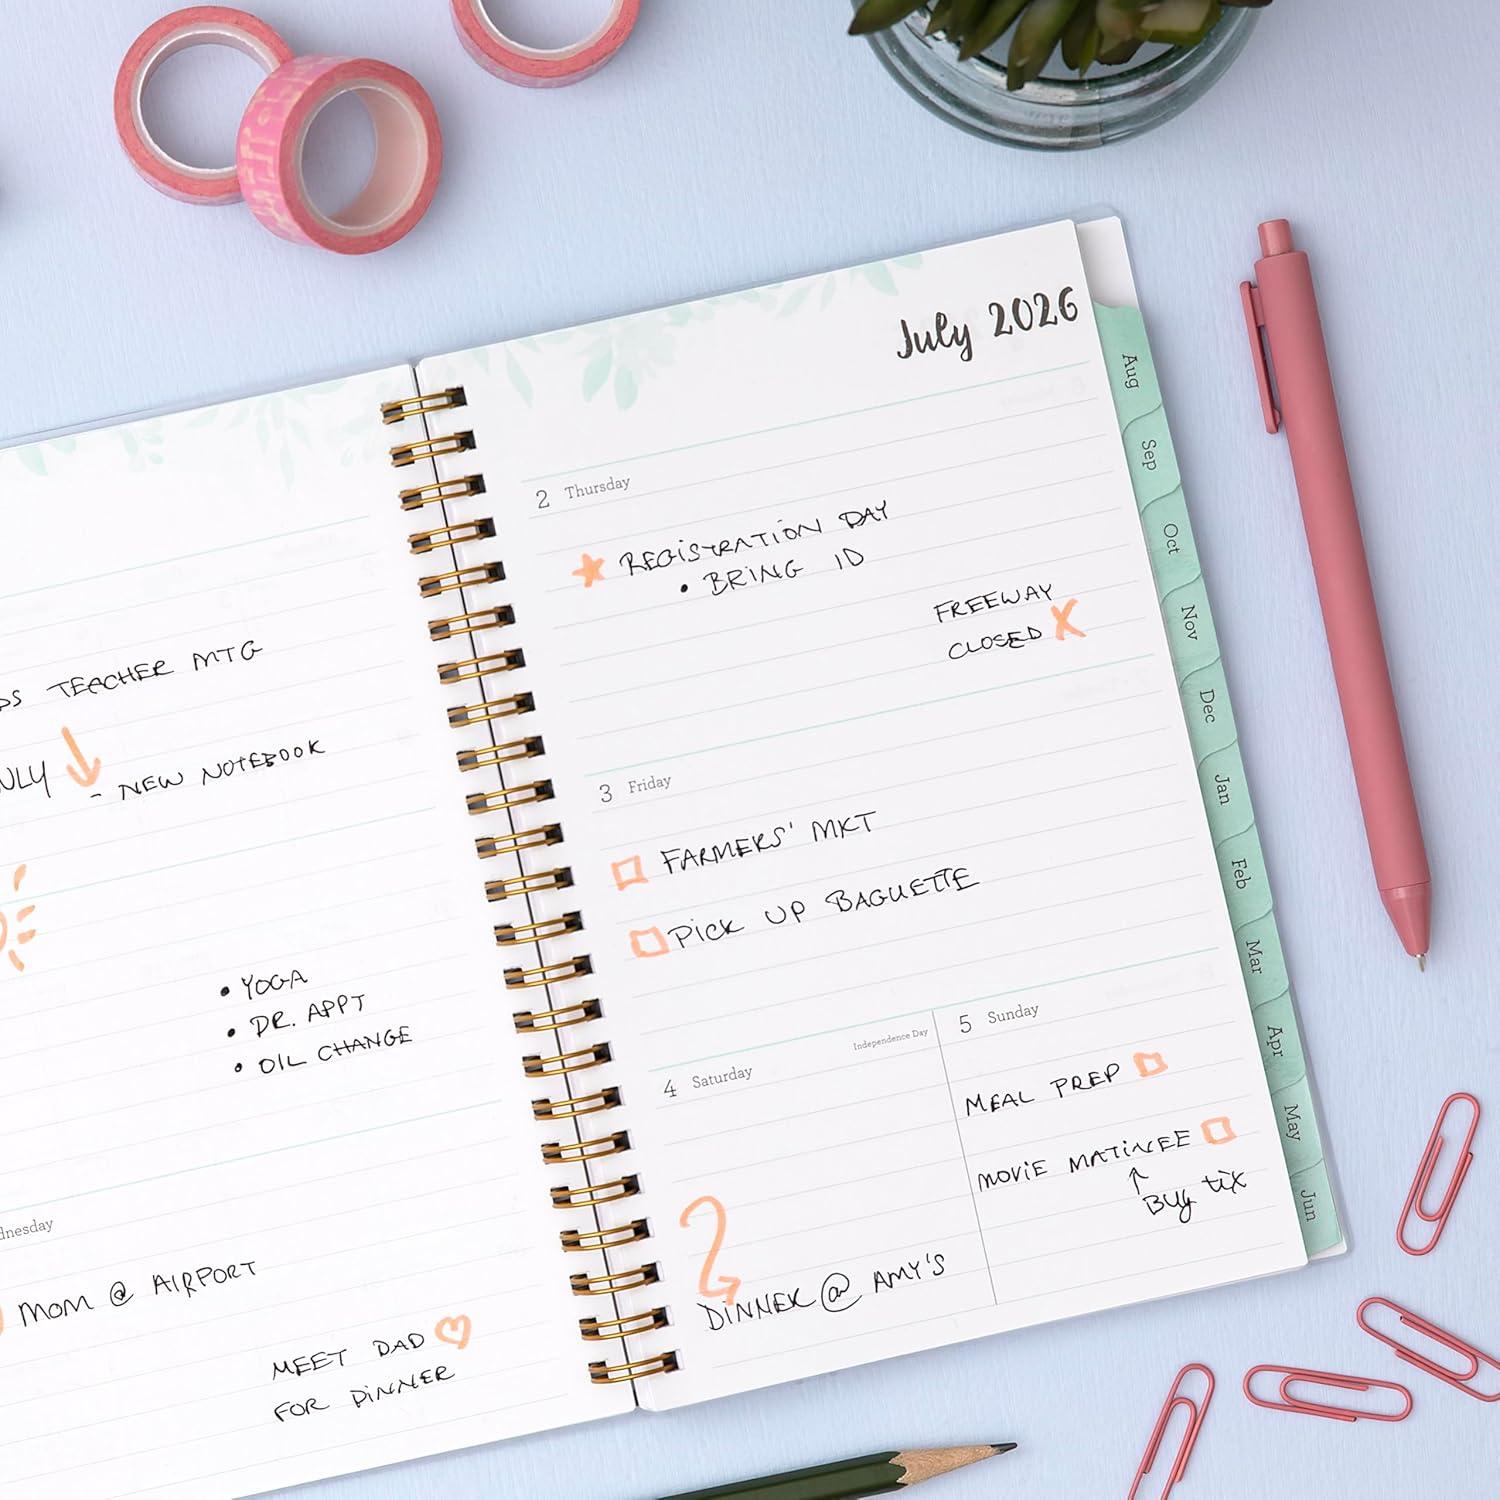 TEACHER MTG
- NEW NOTEBOOK
• YOGA
• DR. APPT
• OIL CHANGE
MOM @ AIRPORT
MEET DAD
FOR DINNER
July 2026
2 Thursday
REGISTRATION DAY
• BRING ID
FREEWAY
CLOSED X
3 Friday
FARMERS' MKT
PICK UP BAGUETTE
4 Saturday
Independence Day
DINNER @ AMY'S
5 Sunday
MEAL PREP
MOVIE MATINEE
BUY TIX
Aug
Sep
Oct
Nov
Dec
Jan
Feb
Mar
Apr
May
Jun